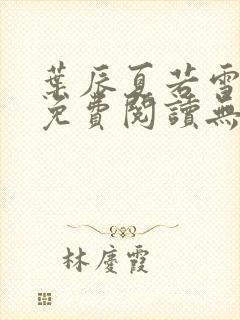 葉辰夏若雪
免費閱讀無
林慶霞